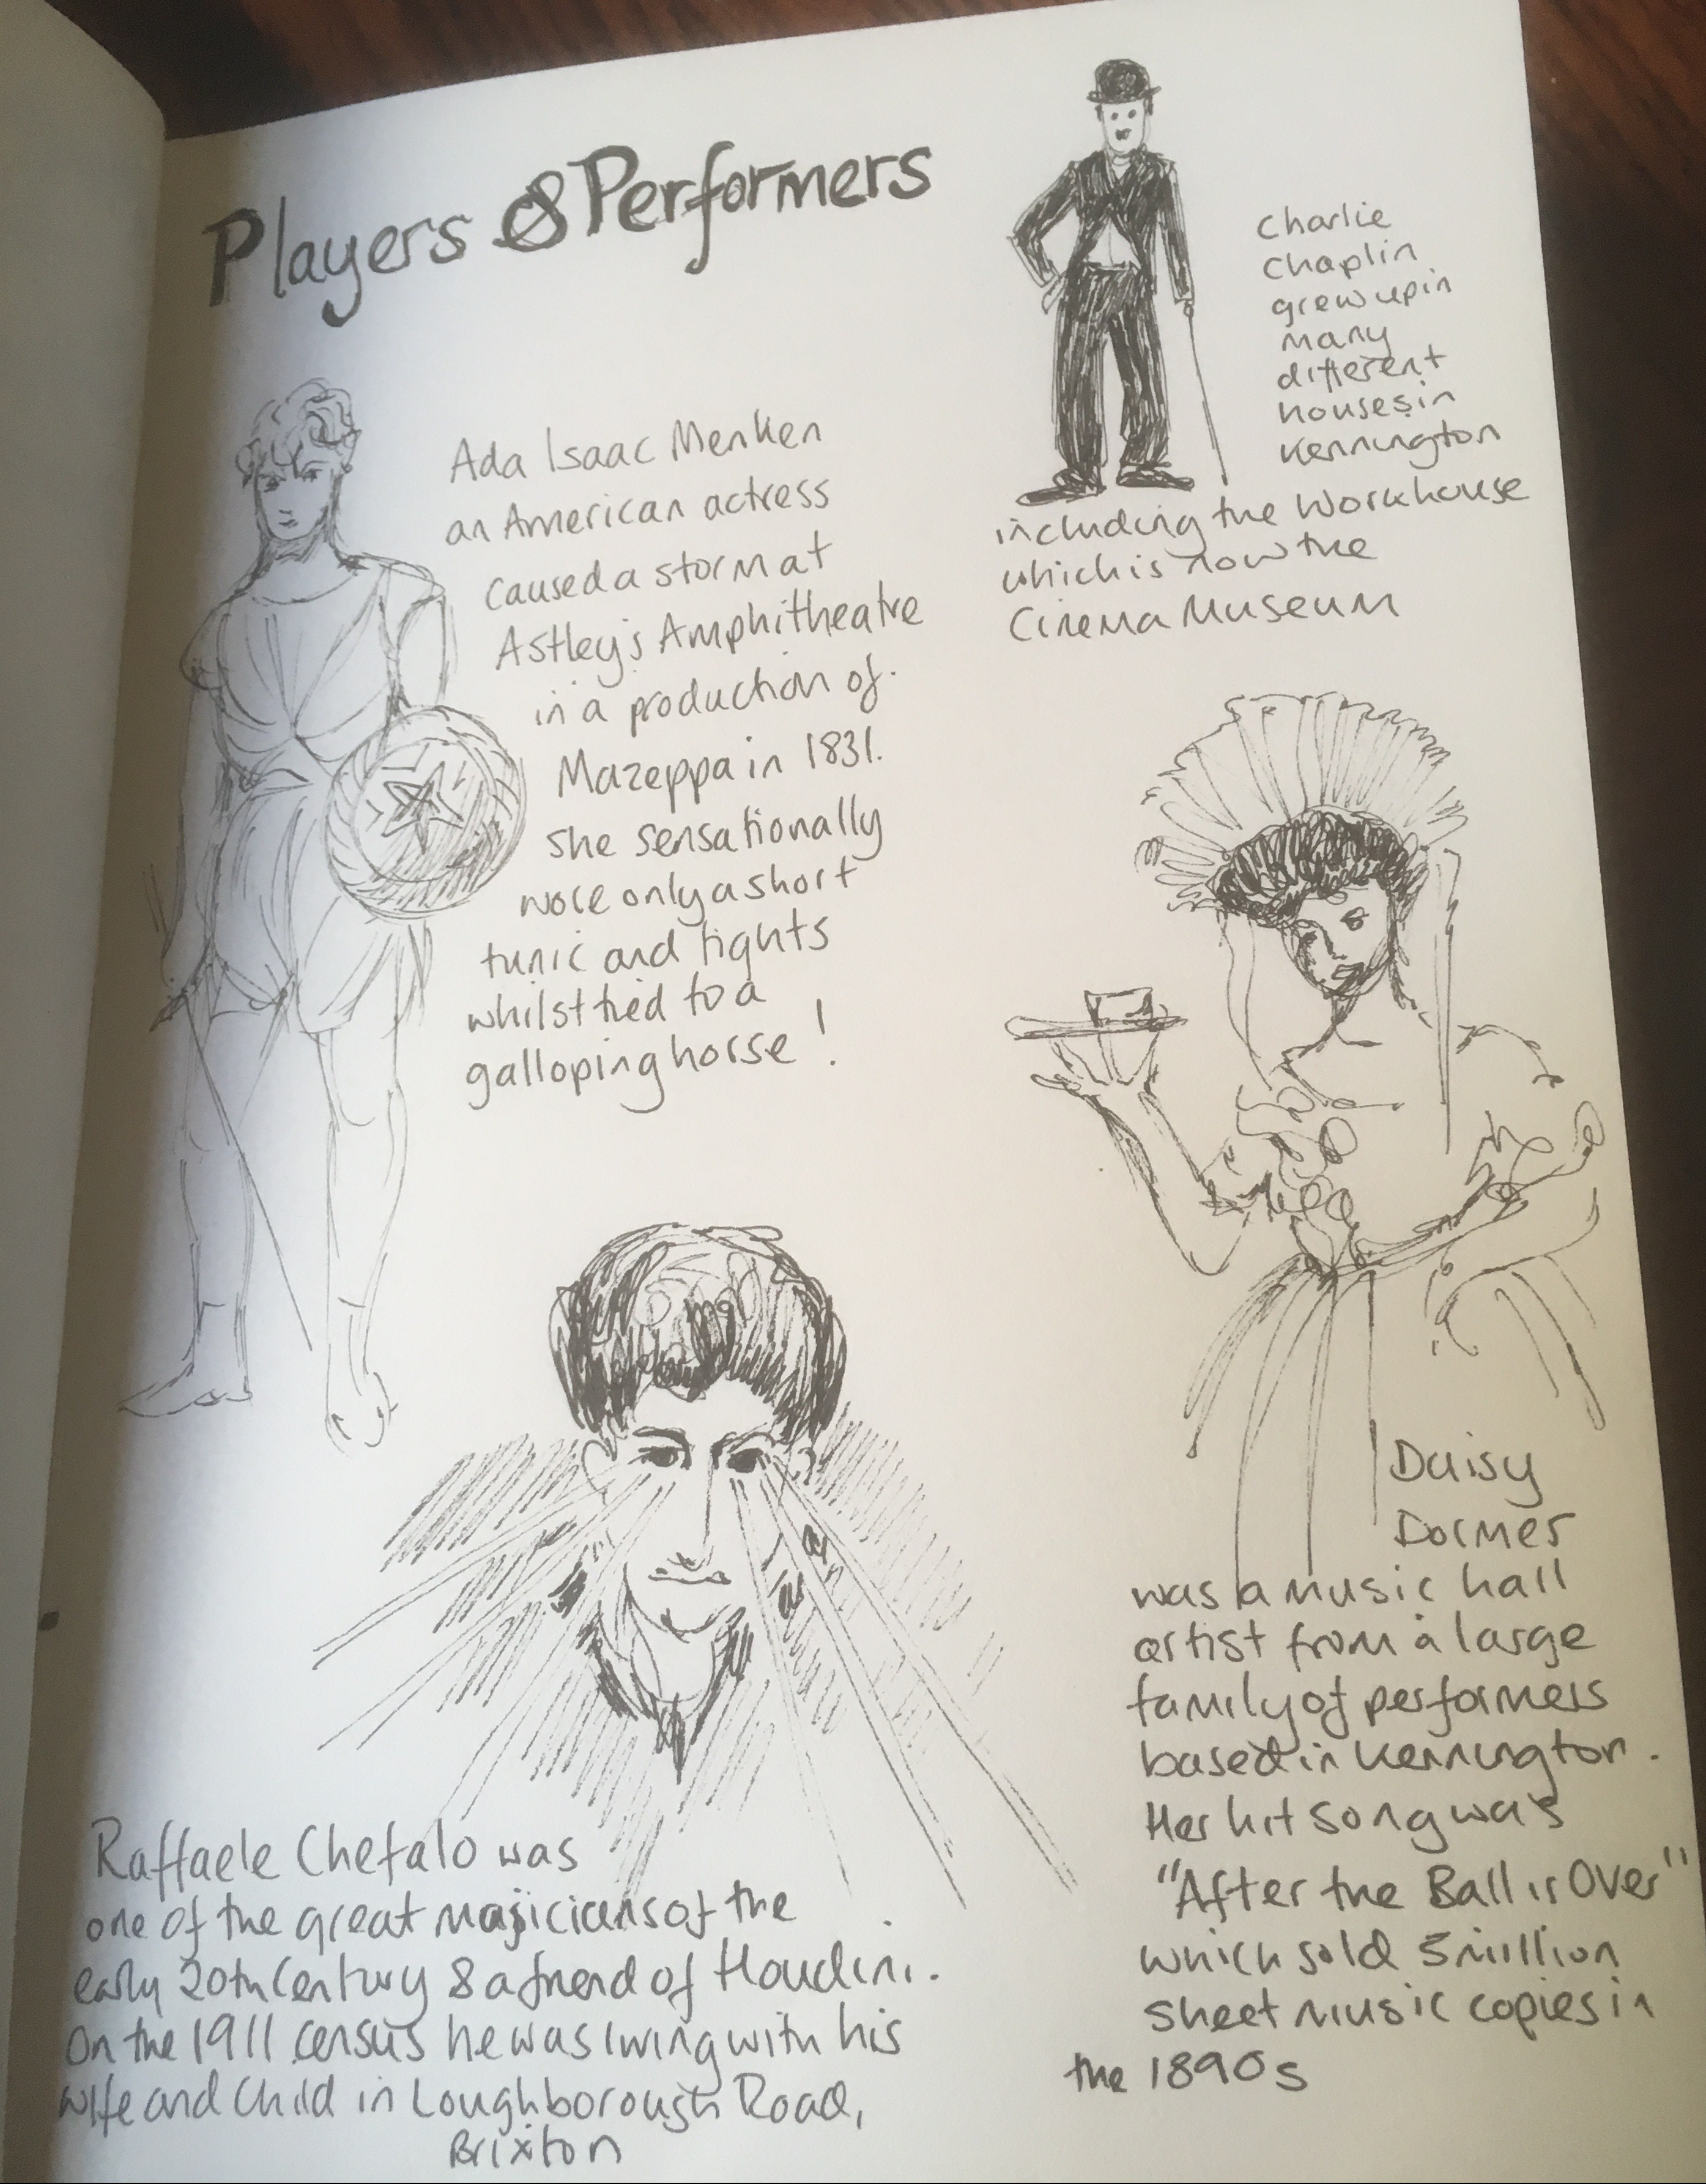 Players & Performers
Charlie
Chaplin
grew up in
many
different
houses in
Kennington
including the Workhouse
which is now the
Cinema Museum
Ada Isaac Menken
an American actress
caused a storm at
Astley's Amphitheatre
in a production of
Mazeppa in 1831.
she sensationally
wore only a short
tunic and tights
whilst tied to a
galloping horse !
Daisy
Dormer
was a music hall
artist from a large
family of performers
based in Kennington.
Her hit song was
"After the Ball is Over"
which sold 5 million
sheet music copies in
the 1890s
Raffaele Chefalo was
one of the great majicians of the
early 20th Century & a friend of Houdini.
On the 1911 census he was living with his
wife and child in Loughborough Road,
Brixton